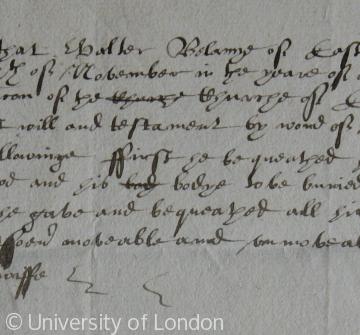 that Walter Relving of East
th of November in the yeare of
son of the churche Churche of
t will and testament by word of
llowinge ffirst he bequeathed
od and his bod bodye to be buried
he gave and bequeathed all his
moveable and unmoveab
wiffe
© University of London